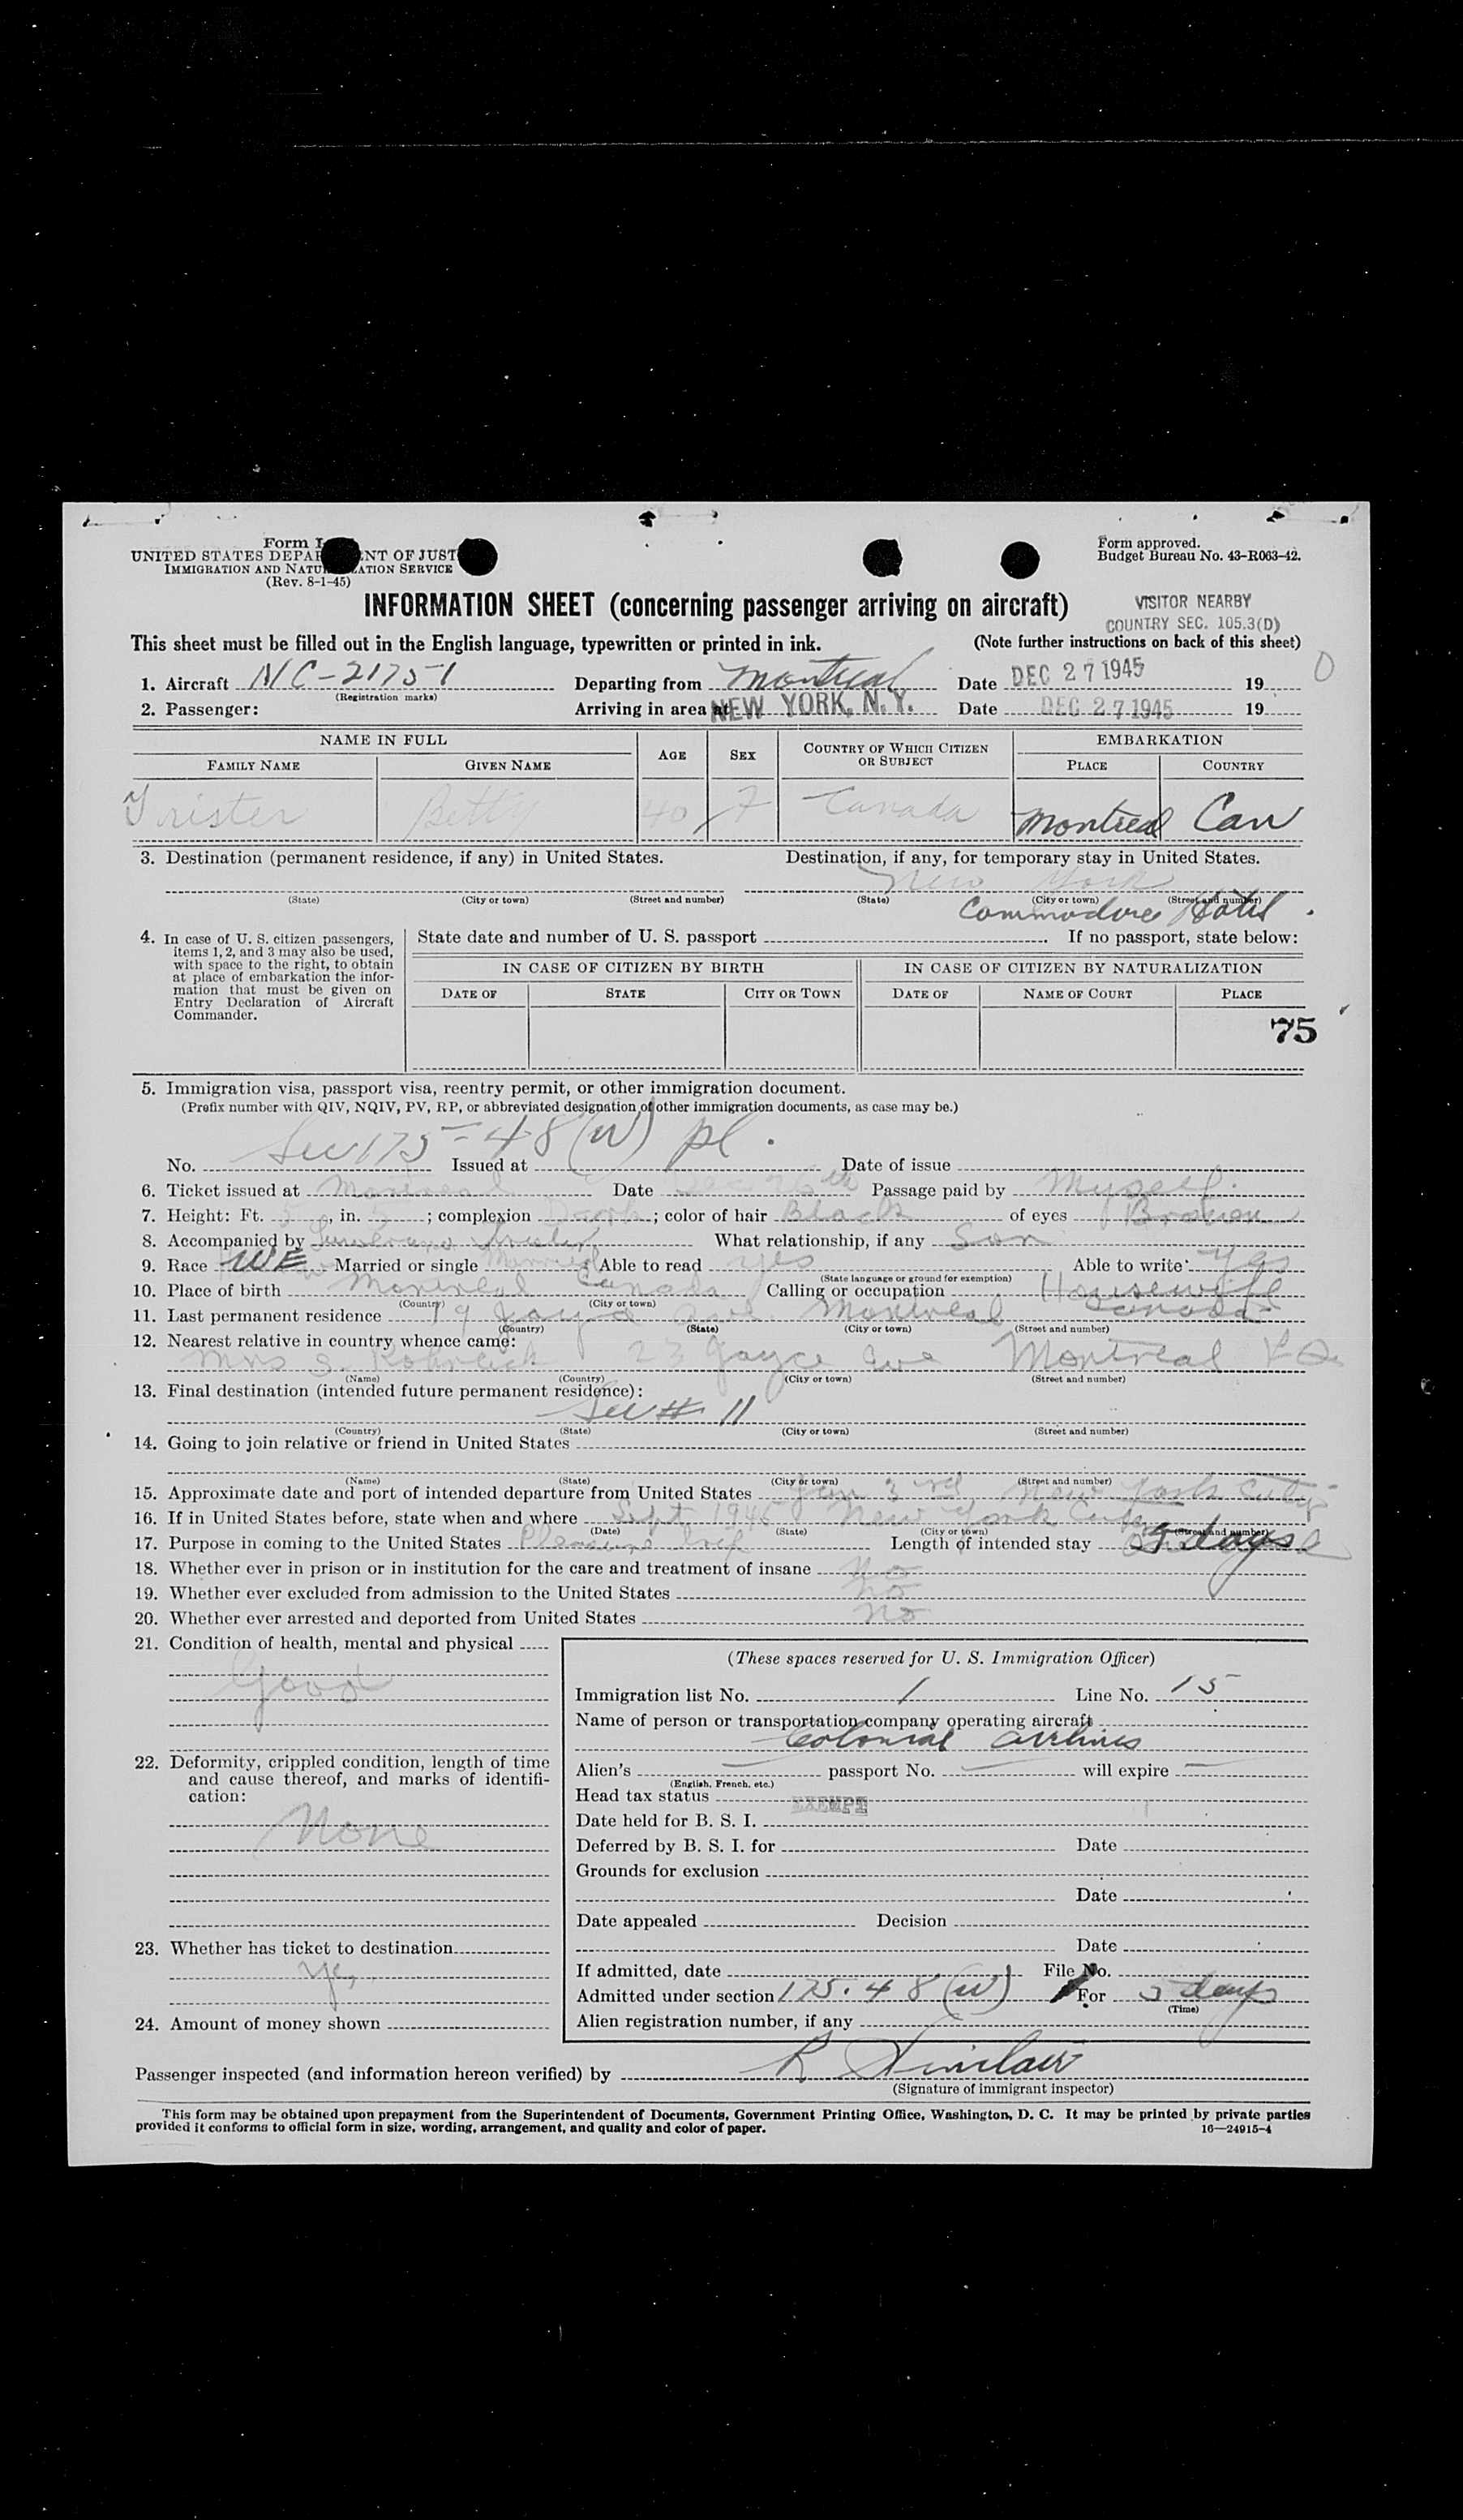 Form I
UNITED STATES DEPAR ENT OF JUST
IMMIGRATION AND NATU ATION SERVICE
(Rev. 8-1-45)
Form approved.
Budget Bureau No. 43-R063-42.
INFORMATION SHEET (concerning passenger arriving on aircraft)
VISITOR NEARBY
COUNTRY SEC. 105.3(D)
This sheet must be filled out in the English language, typewritten or printed in ink. (Note further instructions on back of this sheet)
1. Aircraft NC-21751 Departing from Montreal Date DEC 27 1945 19
(Registration marks)
2. Passenger: Arriving in area at NEW YORK, N.Y. Date DEC 27 1945 19
NAME IN FULL AGE SEX COUNTRY OF WHICH CITIZEN OR SUBJECT EMBARKATION
FAMILY NAME GIVEN NAME PLACE COUNTRY
Trister Betty 40 F Canada Montreal Can
3. Destination (permanent residence, if any) in United States. Destination, if any, for temporary stay in United States.
New York
(State) (City or town) (Street and number) (State) (City or town) (Street and number)
Commodore Hotel
4. In case of U. S. citizen passengers, items 1, 2, and 3 may also be used, with space to the right, to obtain at place of embarkation the information that must be given on Entry Declaration of Aircraft Commander.
State date and number of U. S. passport If no passport, state below:
IN CASE OF CITIZEN BY BIRTH IN CASE OF CITIZEN BY NATURALIZATION
DATE OF STATE CITY OR TOWN DATE OF NAME OF COURT PLACE
75
5. Immigration visa, passport visa, reentry permit, or other immigration document.
(Prefix number with QIV, NQIV, PV, RP, or abbreviated designation of other immigration documents, as case may be.)
Sec 175-48 (W) pl.
No. Issued at Date of issue
6. Ticket issued at Montreal Date Dec 26th Passage paid by Myself
7. Height: Ft. 5, in. 5; complexion Dark; color of hair Black of eyes Brown
8. Accompanied by Trister What relationship, if any Son
9. Race WE Married or single Married Able to read yes Able to write yes
(State language or ground for exemption)
10. Place of birth Montreal Canada Calling or occupation Housewife
(Country) (City or town)
11. Last permanent residence 19 Ave. Montreal Canada
(Country) (State) (City or town) (Street and number)
12. Nearest relative in country whence came:
Mrs S. 23 Joyce Ave Montreal P.Q.
(Name) (Country) (City or town) (Street and number)
13. Final destination (intended future permanent residence):
See # 11
(Country) (State) (City or town) (Street and number)
14. Going to join relative or friend in United States
(Name) (State) (City or town) (Street and number)
15. Approximate date and port of intended departure from United States Jan 3rd New York City
16. If in United States before, state when and where Sept 1945 New York City
(Date) (State) (City or town) (Street and number)
17. Purpose in coming to the United States Pleasure trip Length of intended stay 5 days
18. Whether ever in prison or in institution for the care and treatment of insane No
19. Whether ever excluded from admission to the United States no
20. Whether ever arrested and deported from United States No
21. Condition of health, mental and physical
Good
22. Deformity, crippled condition, length of time and cause thereof, and marks of identification:
None
23. Whether has ticket to destination
Yes
24. Amount of money shown
(These spaces reserved for U. S. Immigration Officer)
Immigration list No. 1 Line No. 15
Name of person or transportation company operating aircraft
Colonial Airlines
Alien's passport No. will expire
(English, French, etc.)
Head tax status EXEMPT
Date held for B. S. I.
Deferred by B. S. I. for Date
Grounds for exclusion
Date
Date appealed Decision
Date
If admitted, date File No.
Admitted under section 175.48 (W) For 5 days
(Time)
Alien registration number, if any
Passenger inspected (and information hereon verified) by R Sinclair
(Signature of immigrant inspector)
This form may be obtained upon prepayment from the Superintendent of Documents, Government Printing Office, Washington, D. C. It may be printed by private parties
provided it conforms to official form in size, wording, arrangement, and quality and color of paper. 16—24915-4